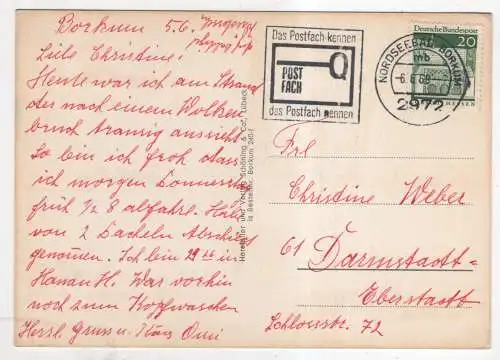 Borkum 5.6.
Liebe Christine!
Heute war ich am Strand
der nach einem Wolken
bruch traurig aussieht.
So bin ich froh dass
ich morgen Donnerstag
früh ½ 8 abfahre. Habe
von 2 Dackeln Abschied
genommen. Ich bin in
Hanau H. War vorhin
noch zum Kopfwaschen
Herzl. Gruss u. Kuss Omi
Hersteller und Verlag Schöning & Co., Lübeck
Borkum
Das Postfach kennen
POST
FACH
das Postfach nennen
NORDSEEBAD BORKUM
mb
-6.6.68
2972
Deutsche Bundespost
20
Frl
Christine Weber
61 Darmstadt-
Eberstadt
Schlossstr. 72